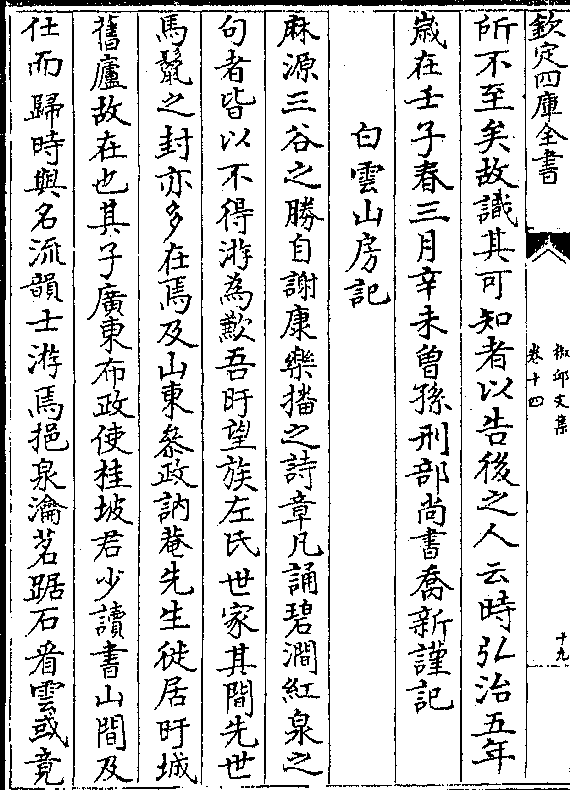 欽定四庫全書
椒邱文集
卷十四
十九
所不至矣故識其可知者以告後之人云時弘治五年
歳在壬子春三月辛未曽孫刑部尚書喬新謹記
白雲山房記
麻源三谷之勝自謝康樂播之詩章凡誦碧澗紅泉之
句者皆以不得游為歉吾盱望族左氏世家其間先世
馬鬛之封亦多在焉及山東叅政訥菴先生徙居盱城
舊廬故在也其子廣東布政使桂坡君少讀書山間及
仕而歸時與名流韻士游焉挹泉瀹茗踞石看雲或竟